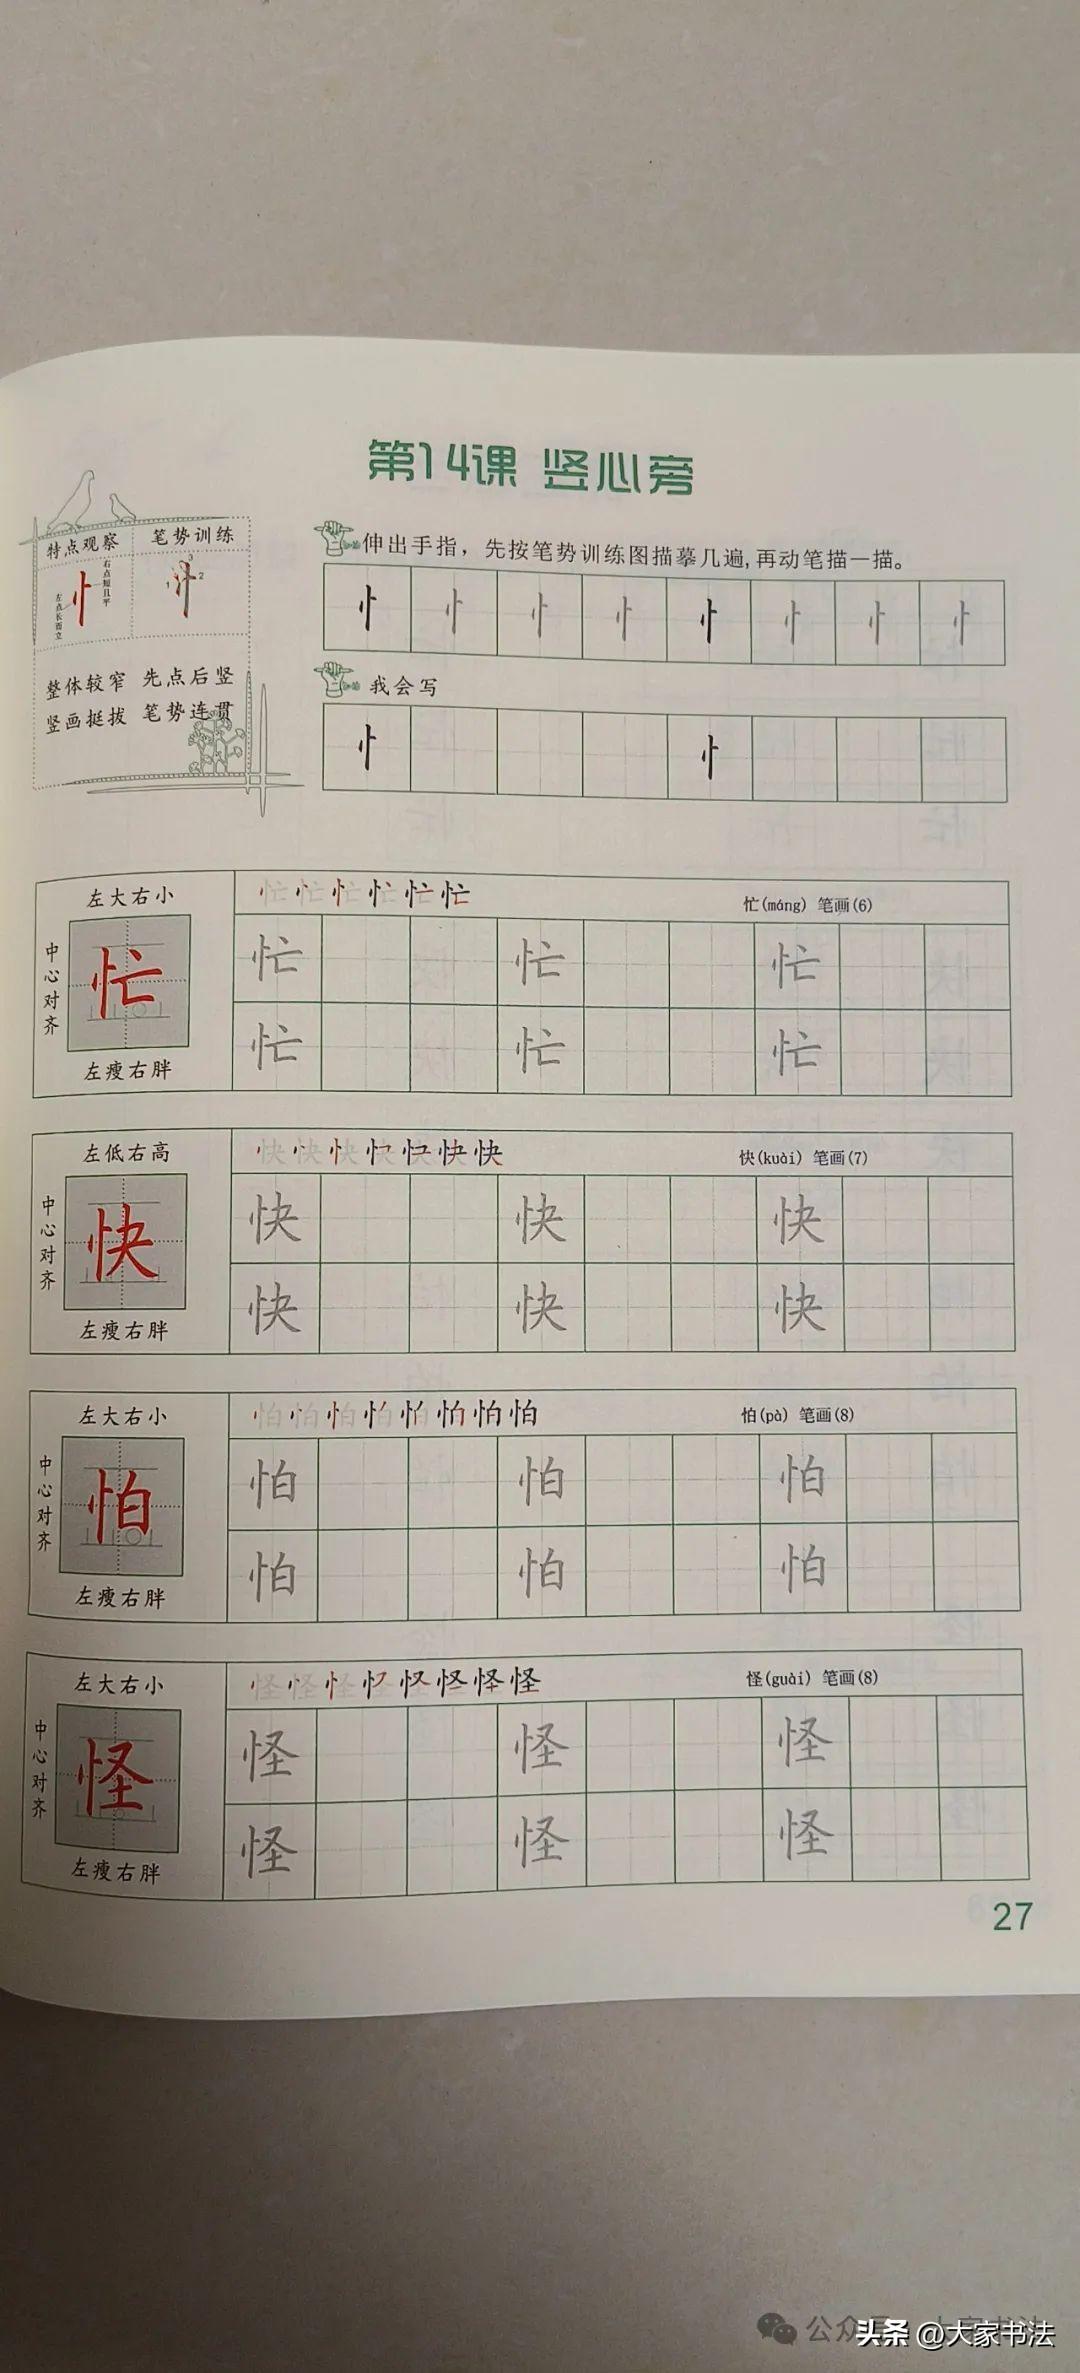 第14课 竖心旁
特点观察 笔势训练
左点长而立
右点短且平
1 2 3
整体较窄 先点后竖
竖画挺拔 笔势连贯
伸出手指，先按笔势训练图描摹几遍,再动笔描一描。
忄 忄 忄 忄 忄 忄 忄 忄
我会写
忄 忄
左大右小
中心对齐
忙
左瘦右胖
忙 忙 忙 忙 忙 忙
忙(máng) 笔画(6)
忙 忙 忙
忙 忙 忙
左低右高
中心对齐
快
左瘦右胖
快 快 快 快 快 快 快
快(kuài) 笔画(7)
快 快 快
快 快 快
左大右小
中心对齐
怕
左瘦右胖
怕 怕 怕 怕 怕 怕 怕 怕
怕(pà) 笔画(8)
怕 怕 怕
怕 怕 怕
左大右小
中心对齐
怪
左瘦右胖
怪 怪 怪 怪 怪 怪 怪 怪
怪(guài) 笔画(8)
怪 怪 怪
怪 怪 怪
27
公众号
头条 @大家书法